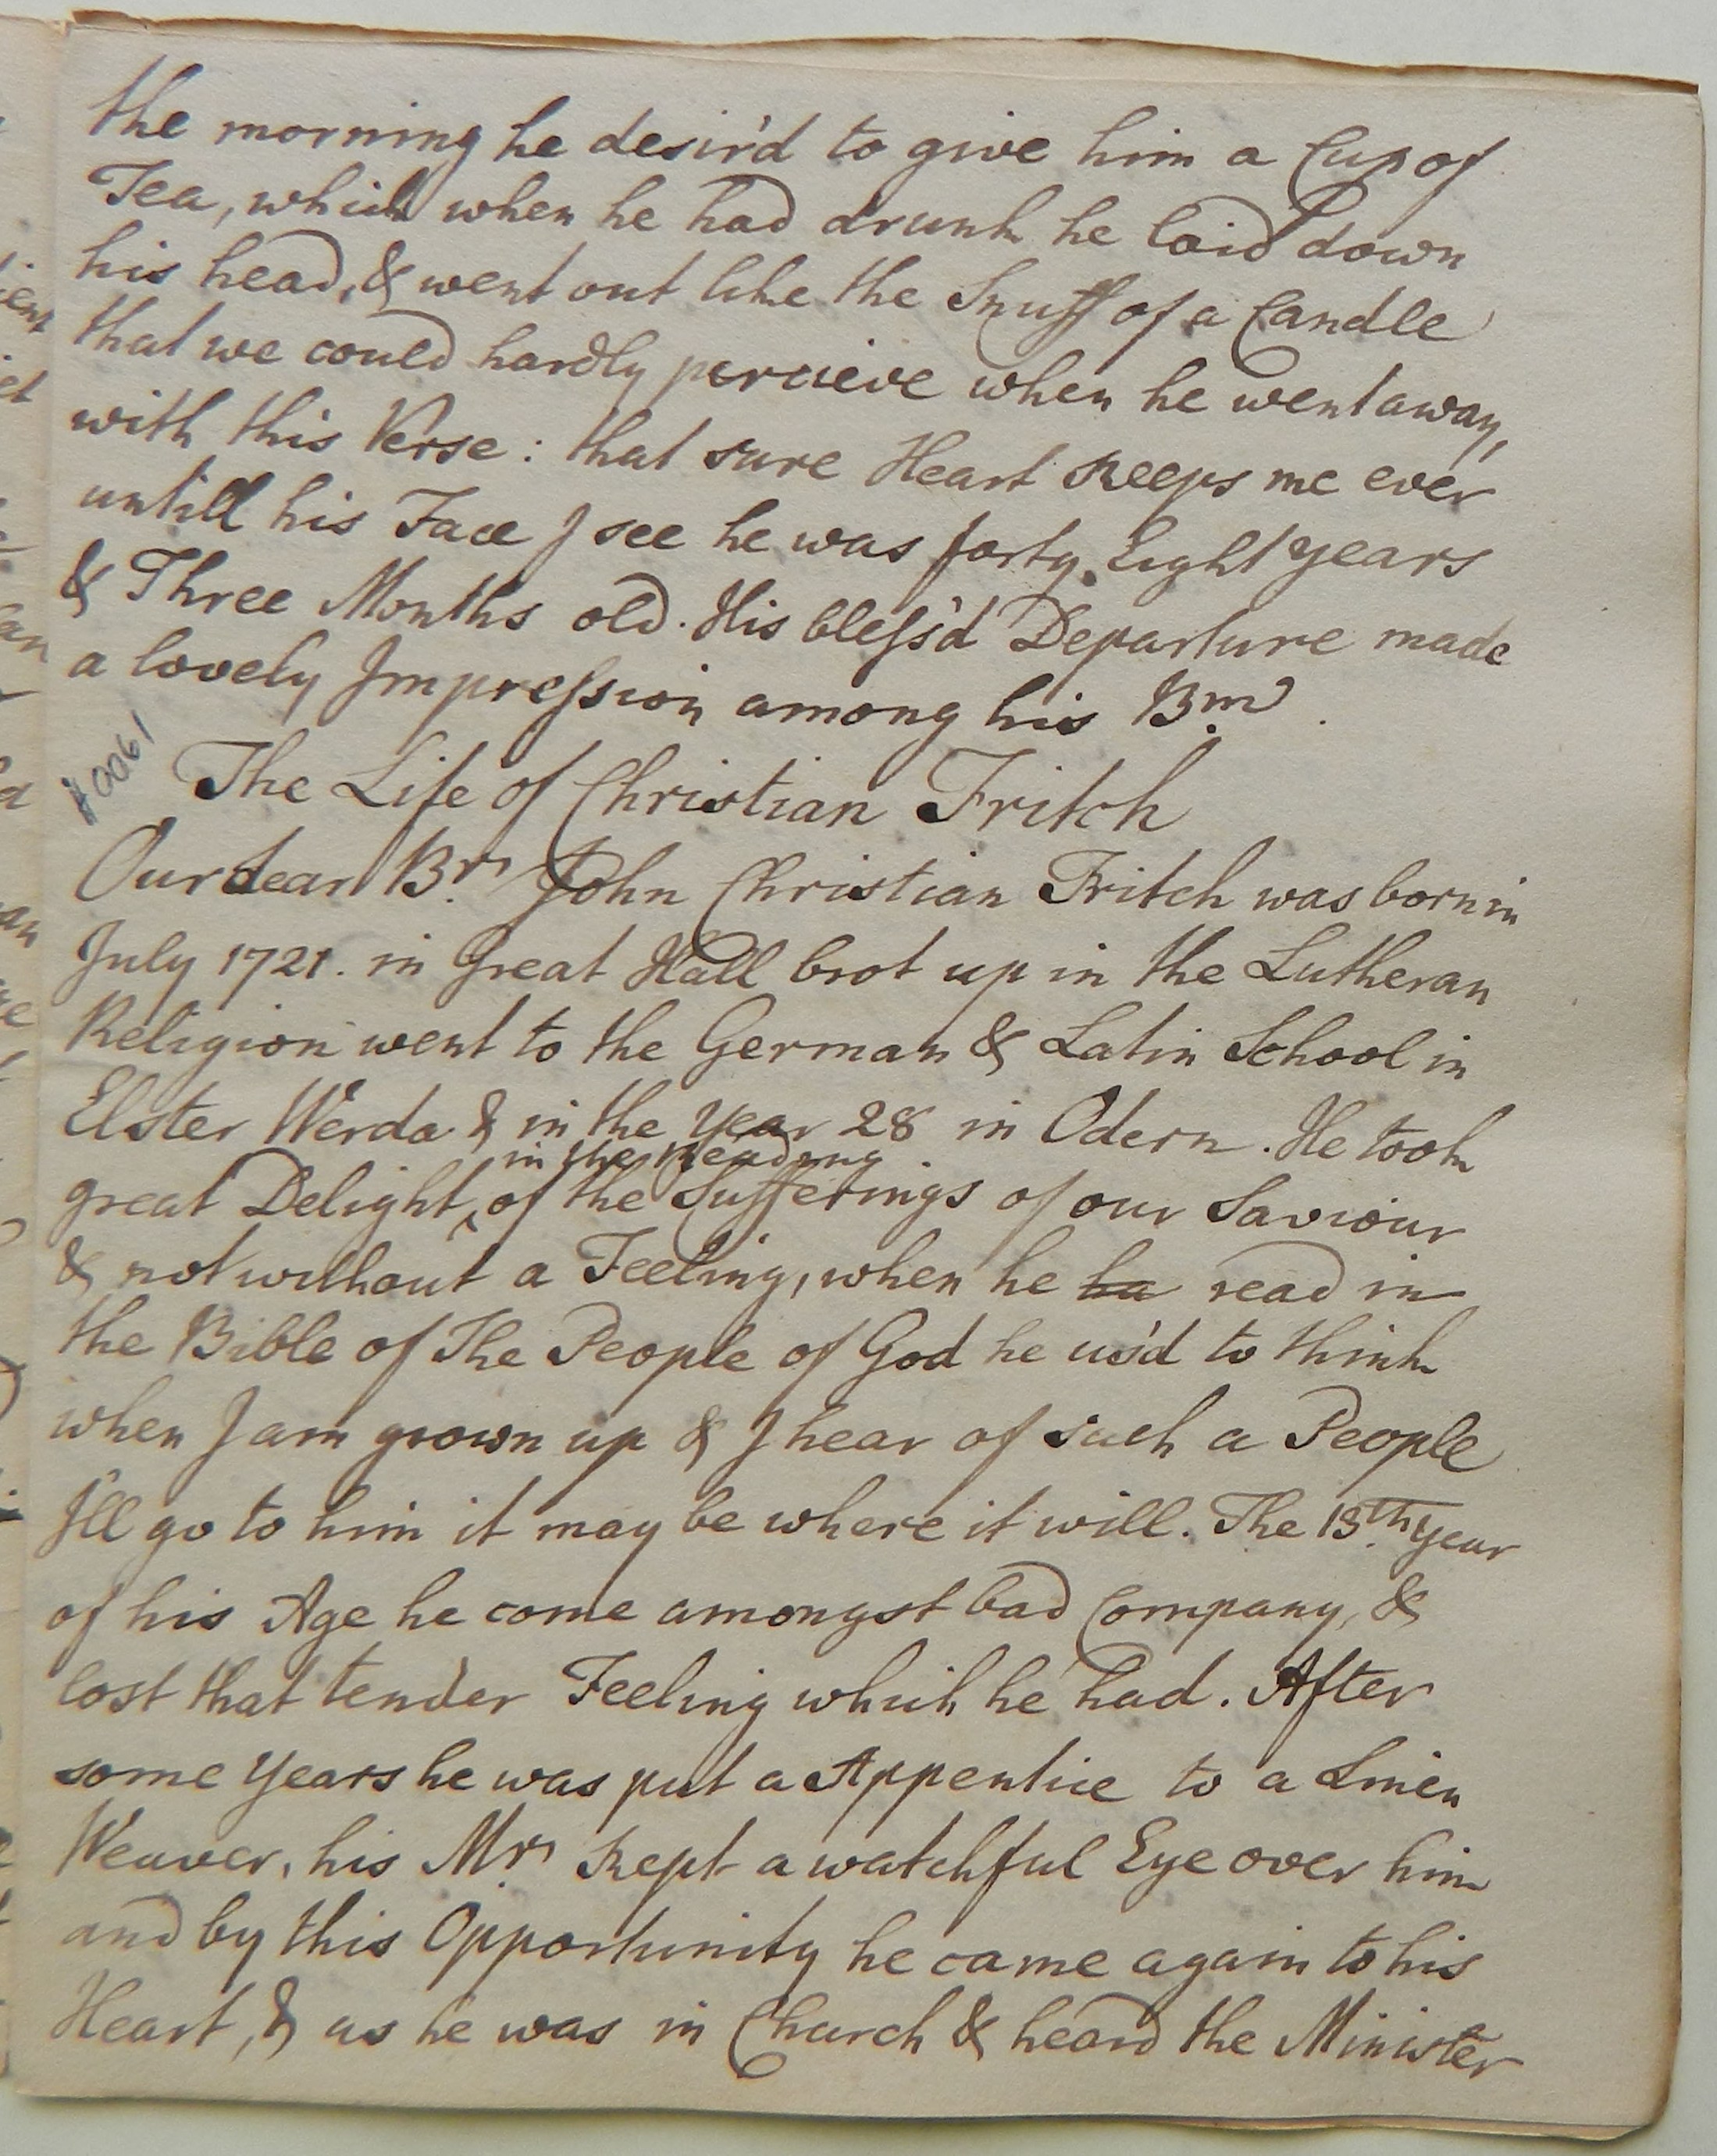 the morning he desir'd to give him a Cup of
Tea, which when he had drunk he laid down
his head, & went out like the Snuff of a Candle
that we could hardly percieve when he went away,
with this Verse: that sure Heart keeps me ever
untill his Face I see he was forty Eight years
& Three Months old. His bless'd Departure made
a lovely Impression among his Brn.
#0061
The Life of Christian Fritch
Our dear Br. John Christian Fritch was born in
July 1721. in Great Hall brot up in the Lutheran
Religion went to the German & Latin School in
Elster Werda & in the year 28 in Odern. He took
in the Reading
great Delight ‸ of the Sufferings of our Saviour
& not without a Feeling, when he ha read in
the Bible of The People of God he us'd to think
when I am grown up & I hear of such a People
I'll go to him it may be where it will. The 13th. year
of his Age he come amongst bad Company, &
lost that tender Feeling which he had. After
some years he was put a Appentice to a Linen
Weaver, his Mr. kept a watchful Eye over him
and by this Opportunity he came again to his
Heart, & as he was in Church & heard the Minister